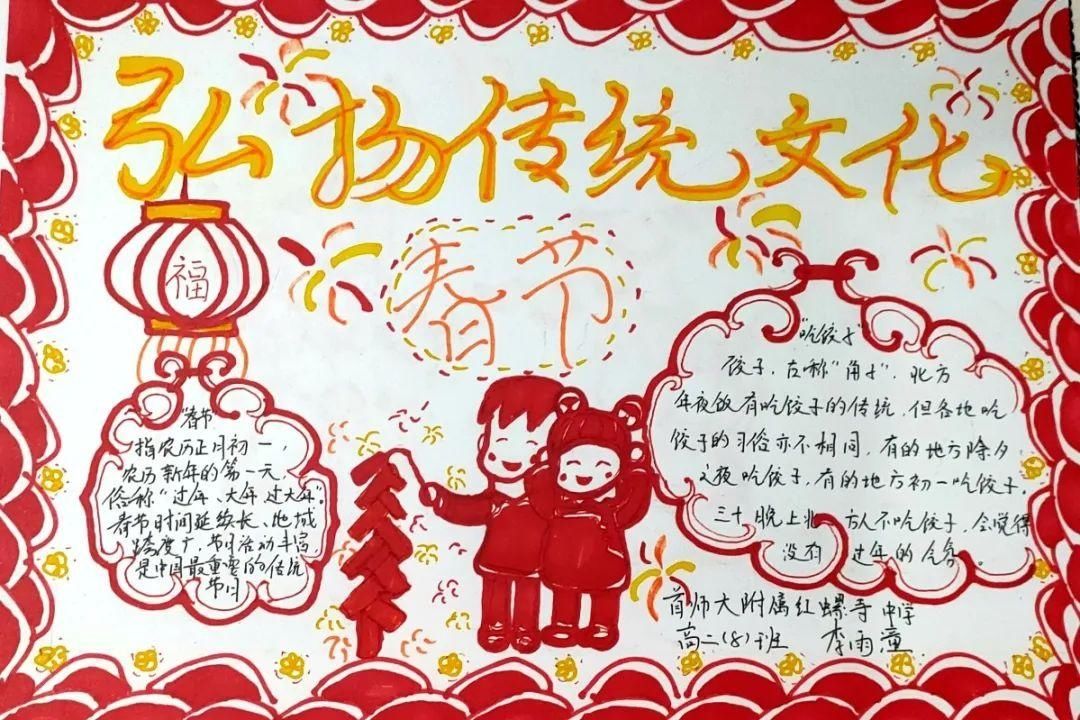 弘扬传统文化
福
春节
"春节"
指农历正月初一，
农历新年的第一天
俗称"过年、大年 过大年。
春节时间延续长、地域
跨度广，节日活动丰富
是中国最重要的传统
节日
"吃饺子"
饺子，古称"角子"，北方
年夜饭有吃饺子的传统，但各地吃
饺子的习俗亦不相同，有的地方除夕
之夜吃饺子，有的地方初一吃饺子，
三十晚上北方人不吃饺子，会觉得
没有 过年的气氛。
首师大附属红螺寺中学
高二(8)班 李雨童